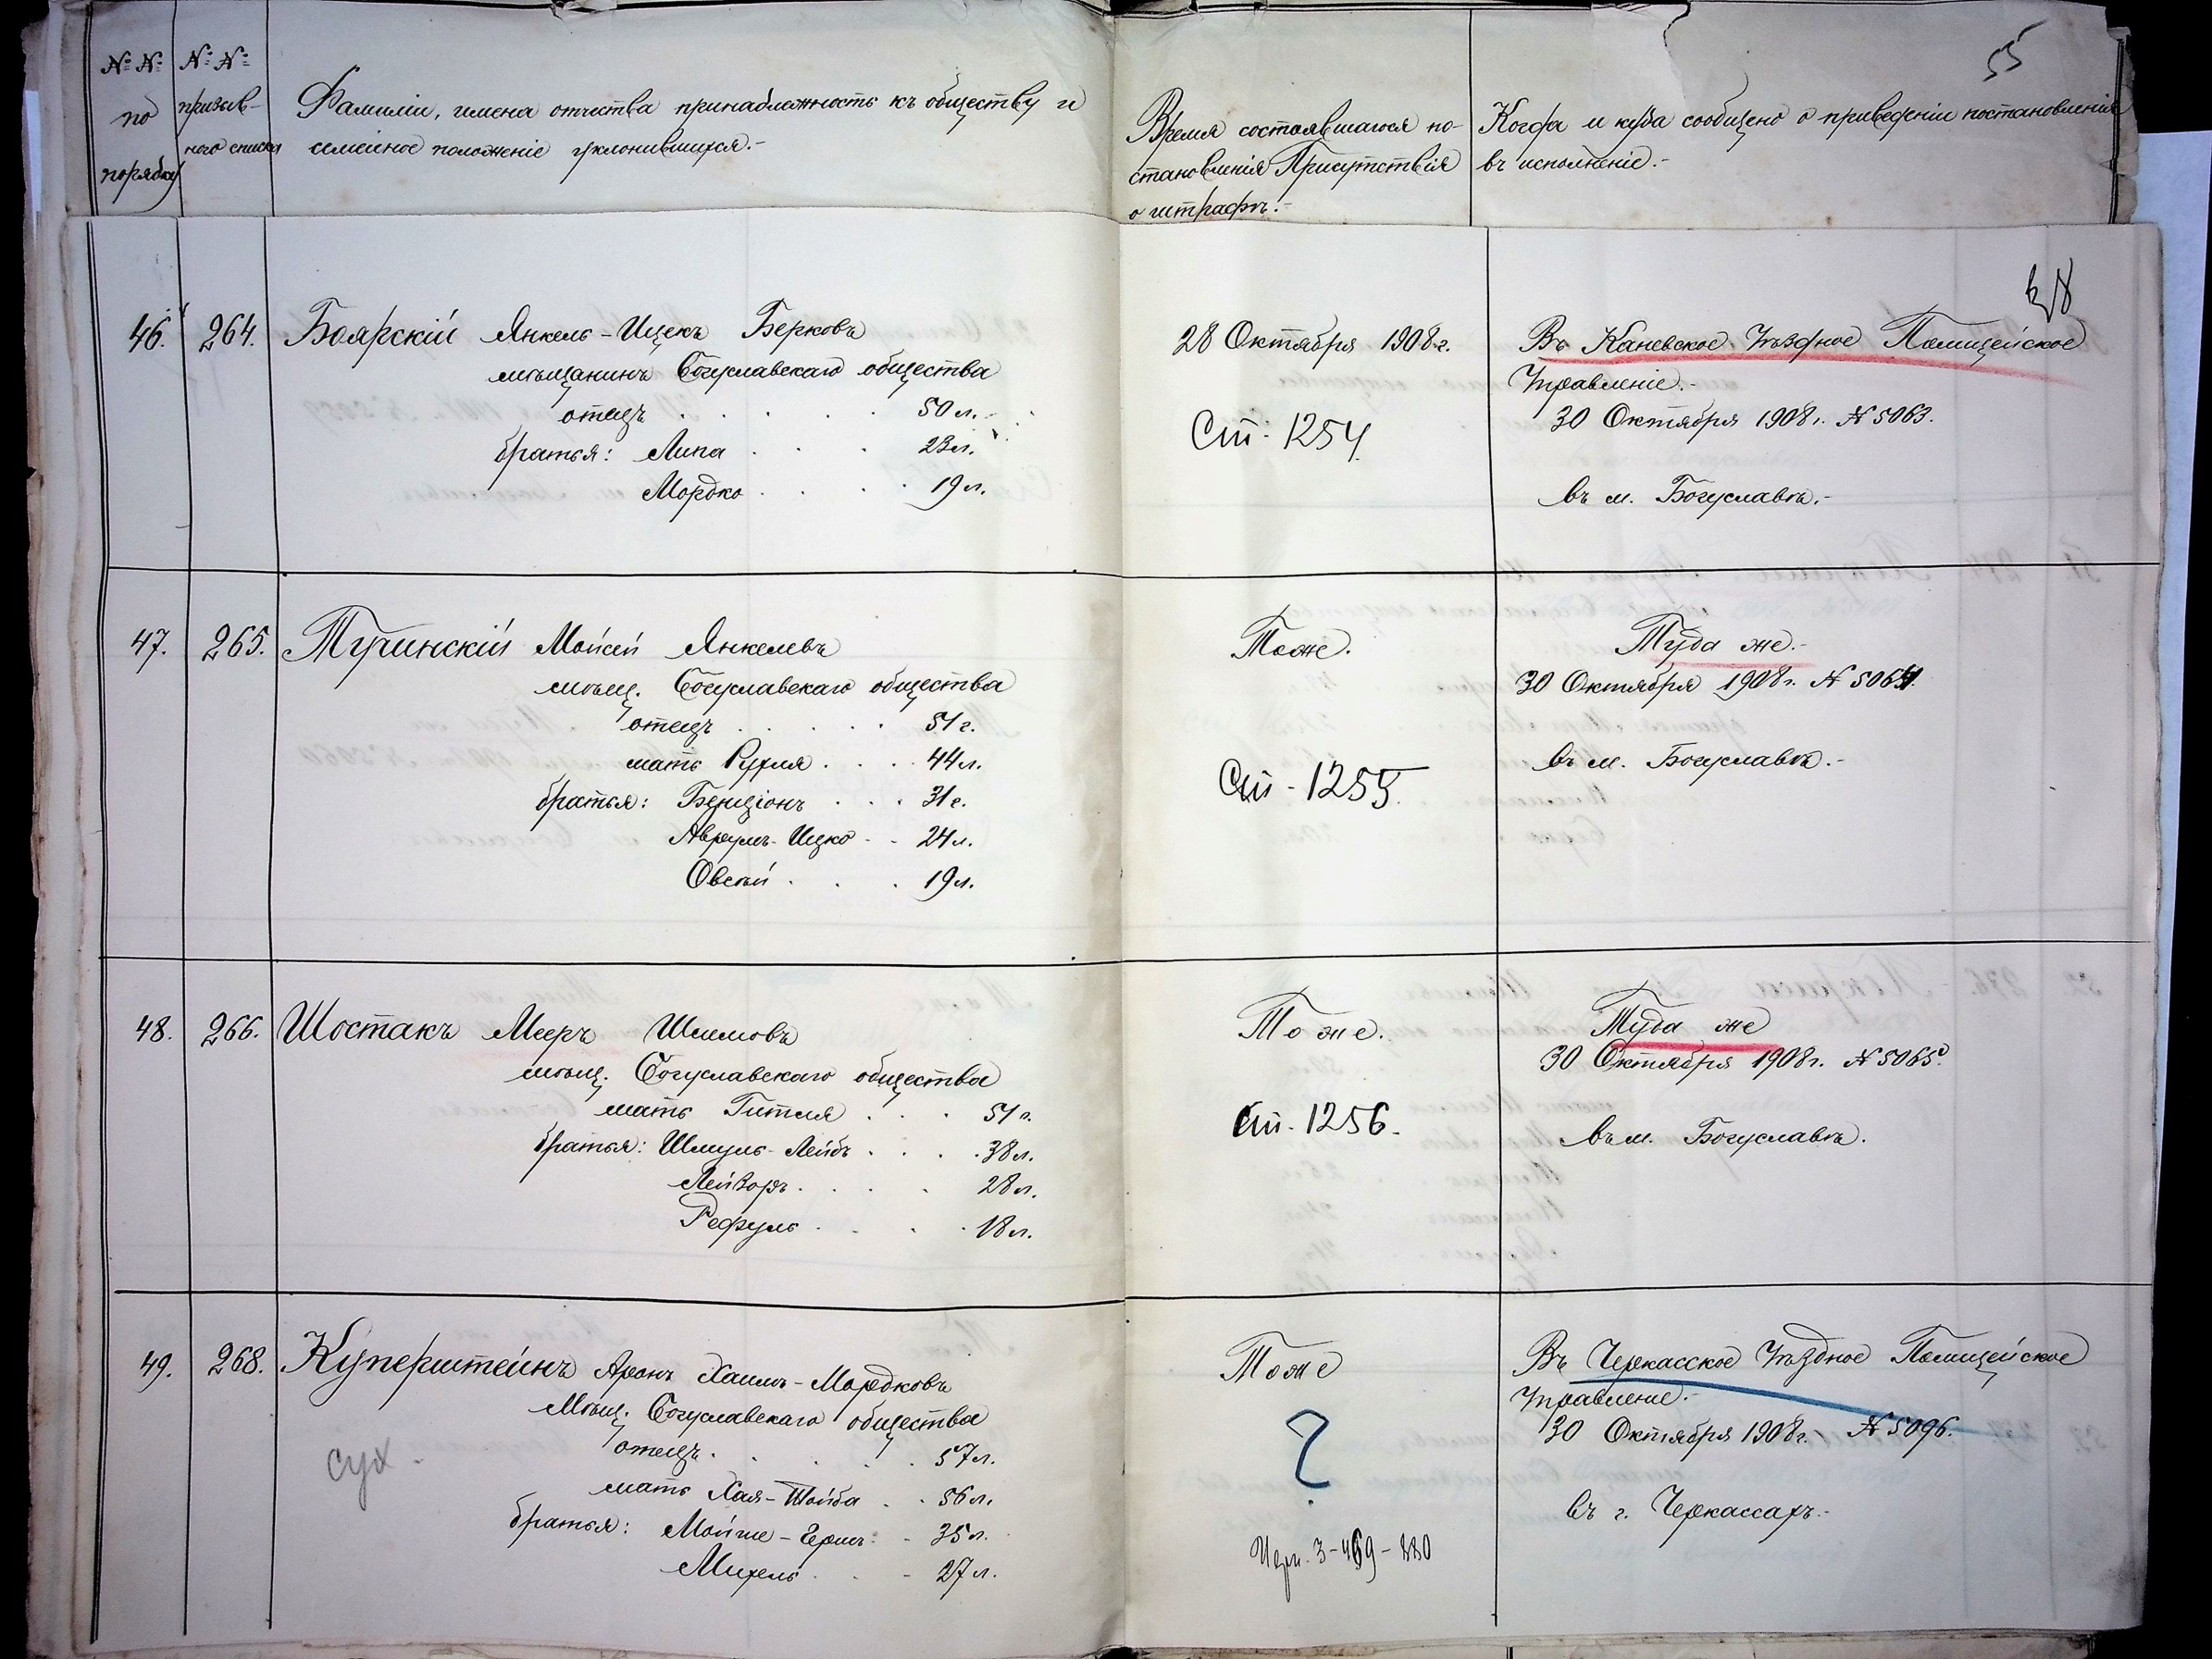 № № по порядку
№ № призыв-
наго списка
Фамиліи, имена отчества принадлежность къ обществу и
семейное положеніе уклонившихся.-
Время состоявшагося по-
становленія Присутствія
о штрафѣ.-
Когда и куда сообщено о приведеніи постановленія
въ исполненіе.-
55
46. 264. Боярскій Янкель-Ицекъ Берковъ
мѣщанинъ Богуславскаго общества
отецъ . . . . . 50 л.
братья: Липа . . . 23 л.
Мордко . . . 19 л.
28 Октября 1908 г.
Ст. 1254
Въ Каневское Уѣздное Полицейское
Управленіе.-
30 Октября 1908 г. № 5063.
въ м. Богуславѣ.-
47. 265. Туринскій Мойсей Янкелевъ
мѣщ. Богуславскаго общества
отецъ . . . . . 51 г.
мать Рухля . . . 44 л.
братья: Бенціонъ . . . 31 г.
Аврумъ-Ицко . . 24 л.
Овсѣй . . . 19 л.
Тоже.
Ст. 1255
Туда же.-
30 Октября 1908 г. № 5064.
въ м. Богуславѣ.-
48. 266. Шостакъ Мееръ Шлемовъ
мѣщ. Богуславскаго общества
мать Гитля . . . 51 г.
братья: Шмуль-Лейбъ . . . 38 л.
Лейзоръ . . . . 28 л.
Рефуль . . . . 18 л.
Тоже.
Ст. 1256.
Туда же
30 Октября 1908 г. № 5065.
въ м. Богуславѣ.
49. 268. Куперштейнъ Аронъ Хаимъ-Мордковъ
Мѣщ. Богуславскаго общества
отецъ . . . . . 57 л.
мать Хая-Тойба . . 56 л.
братья: Мойше-Герш. . 35 л.
Михель . . . 27 л.
сух.
Тоже
?
Въ Черкасское Уѣздное Полицейское
Управленіе.-
30 Октября 1908 г. - № 5096.
въ г. Черкассахъ.-